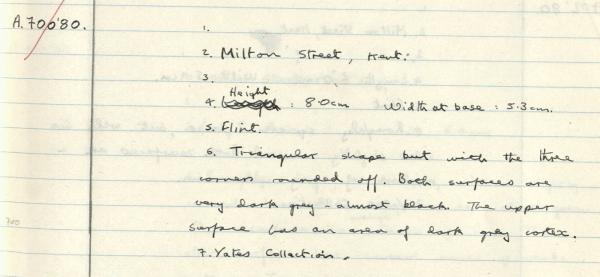 A.700'80.
1.
2. Milton Street, Kent.
3.
Height
4. Length : 8.0cm Width at base : 5.3cm.
5. Flint.
6. Triangular shape but with the three
corners rounded off. Both surfaces are
very dark grey - almost black. The upper
surface has an area of dark grey cortex.
700
7. Yates Collection.